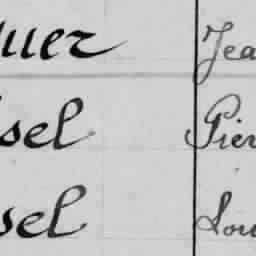 uer Jea
sel Pier
sel Lou